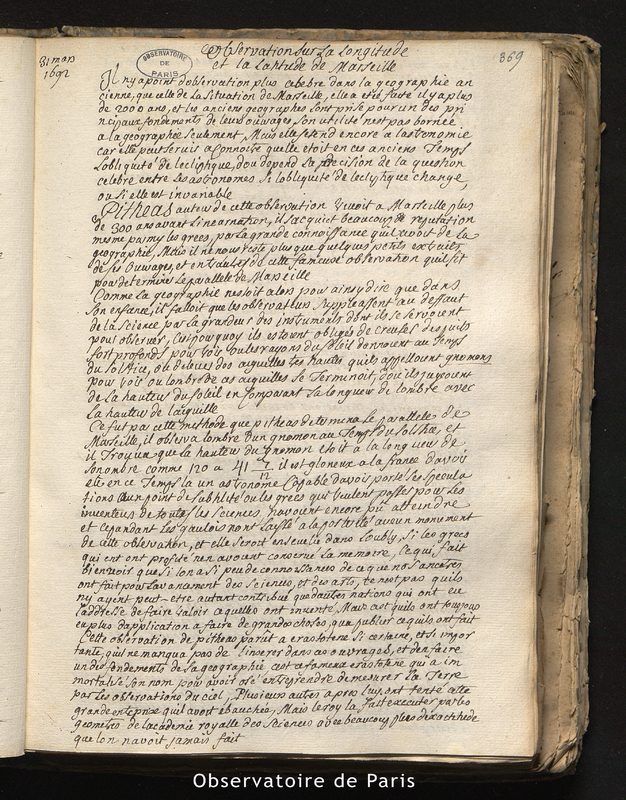 31 mars
1692
OBSERVATOIRE
DE
PARIS
869
Observation sur La Longitude
et la Latitude de Marseille
Il ny a point d'observation plus celebre dans la geographie an
cienne, que celle de La Situation de Marseille, elle a esté faite il y a plus
de 2000 ans, et les anciens geographes Lont prise pour un des pri
ncipaux fondements de leurs ouvrages, Son utilité nest pas bornée
a la geographie seulement, Mais elle setend encore a lastronomie
car elle peut servir a connoitre quelle etoit en ces anciens Temps
Lobliquité de lecliptique, dou depend La decision de la question
celebre entre Les astronomes Si lobliquité de lecliptique change,
ou Si elle est invariable
Pitheas auteur de cette observation vivoit a Marseille plus
de 300 ans avant Lincarnation, il sacquit beaucoup de reputation
mesme parmy les grecs, par La grande connoissance quil avoit de La
geographie, Mais il ne nous reste plus que quelques petits extraits
de ses ouvrages, et entre autres de cette fameuse observation quil fit
pour determiner Le parallele de Marseille
Comme La geographie nestoit alors pour ainsy dire que dans
Son enfance, il falloit que les observateurs Suppleassent au deffaut
de la Science par la grandeur des instruments dont ils se servoient
pour observer, Cest pourquoy ils estoient obligés de creuser des puits
fort profonds pour voir ou les rayons du Soleil donnoient au Temps
du Solstice, ou delever des aiguilles tres hautes quils appelloient gnomons
pour voir ou lombre de ces aiguilles se Terminoit, dou ils jugeoient
de La hauteur du Soleil en Comparant La longueur de lombre avec
La hauteur de laiguille
Ce fut par cette methode que pitheas determina Le parallele de
Marseille, il observa lombre dun gnomon au Temps du Solstice, et
il Trouva que la hauteur du gnomon etoit a la longueur de
Son ombre comme 120 a 41 7/12 il est glorieux a la france davoir
elle en ce Temps la un astronome Capable davoir porté Ses specula
tions a un point de Subtilité ou les grecs qui veulent passer pour Les
inventeurs de toutes les Sciences, navoient encore pû atteindre
et cependant Les gaulois nont Laissé a la posterité aucun monument
de cette observation, et elle Seroit ensevelie dans Loubly, Si les grecs
qui en ont profité nen avoient conservé La memoire, Ce qui fait
bien voir que Si lon a Si peu de connoissance de ce que nos ancestres
ont fait pour Lavancement des Sciences, et des arts, ce nest pas quils
ny ayent peut-etre autant contribué que dautres nations qui ont eu
Laddresse de faire valoir ce quelles ont inventé, Mais cest quils ont toujours
eu plus dapplication a faire de grandes choses, qua publier ce quils ont fait
Cette observation de pitheas parut a eratostene Si certaine, et Si impor
tante, quil ne manqua pas de Linserer dans ses ouvrages, et den faire
un des fondements de La geographie cest ce fameux eratostene qui a im
mortalisé Son nom pour avoir osé entreprendre de mesurer La Terre
par Les observations du ciel, Plusieurs autres apres luy ont tenté cette
grande entreprise quil avoit ebauchée, Mais le roy la fait executer par les
geometres de lacademie royalle des Sciences avec beaucoup plus dexactitude
que lon navoit jamais fait
Observatoire de Paris